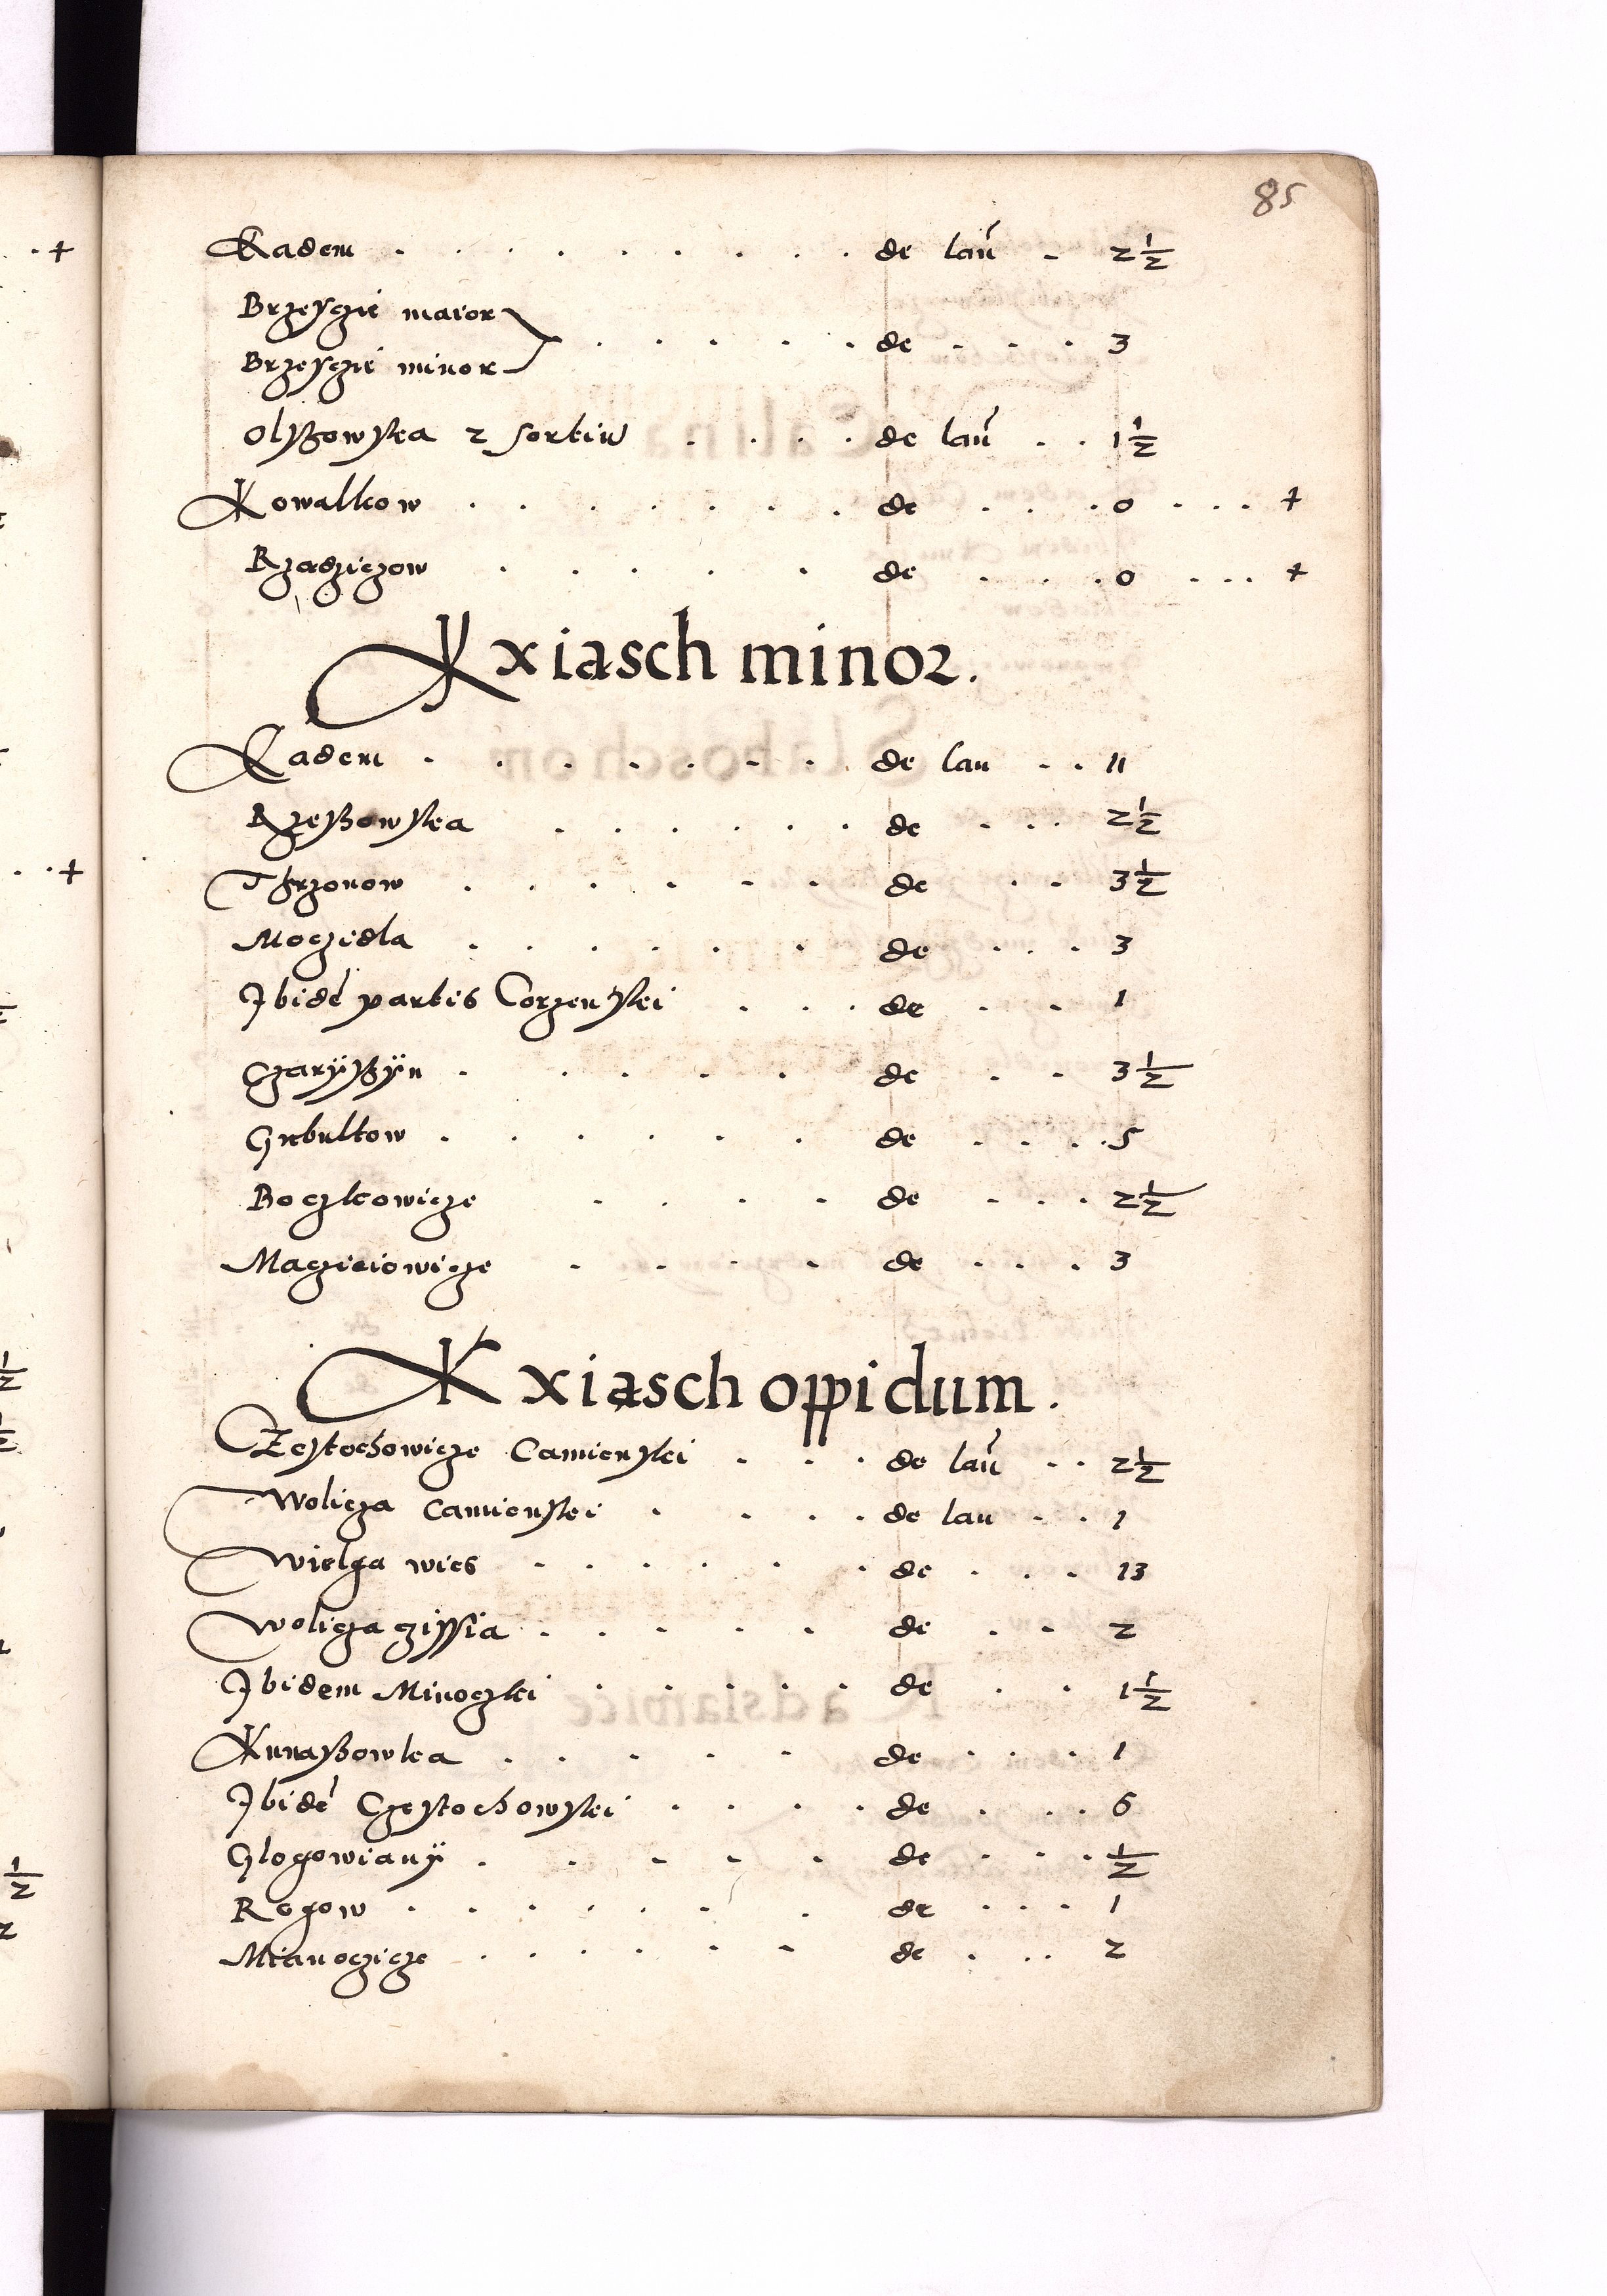 85
Eadem . . . . . . . . . de lañ . 2 1/2
Brzesczie maior
Brzesczie minor . . . . . de . . . 3
Olssowska 2 sortiũ . . . . de lañ . . 1 1/2
Kowalkow . . . . . . . de . . . 0 . . . +
Rzadziczow . . . . . de . . . 0 . . . +
Kxiasch minor.
Eadem . . . . . . . de lan . . 11
Rzessowska . . . . . . de . . . 2 1/2
Thrzonow . . . . . . de . . 3 1/2
Moczidla . . . . . . de . . . 3
Ibidē partis Corzenski . . . de . . 1
Czaryssyn . . . . . de . . 3 1/2
Giebultow . . . . . . de . . . . 5
Boczkowicze . . . . de . . . 2 1/2
Macziiowicze . . . . de . . . 3
Kxiasch oppidum.
Czestochowicze Camienski . . . de lañ . . 2 1/2
Wolicza Camienski . . . . de lan . . 1
Wielga wies . . . . . . de . . . 13
Wolicza zissia . . . . . de . . 2
Ibidem Minoczki . . . . . de . . 1 1/2
Kunassowka . . . . . de . . . 1
Ibidē Czestochowski . . . . de . . . 6
Glogowiany . . . . . de . . . 1/2
Rogow . . . . . . . de . . . 1
Mianoczicze . . . . . . de . . . 2